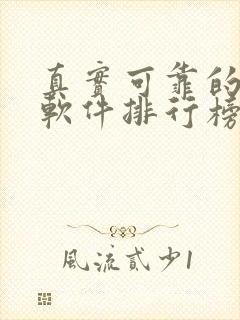 真實可靠的
軟件排行榜
風流貳少1